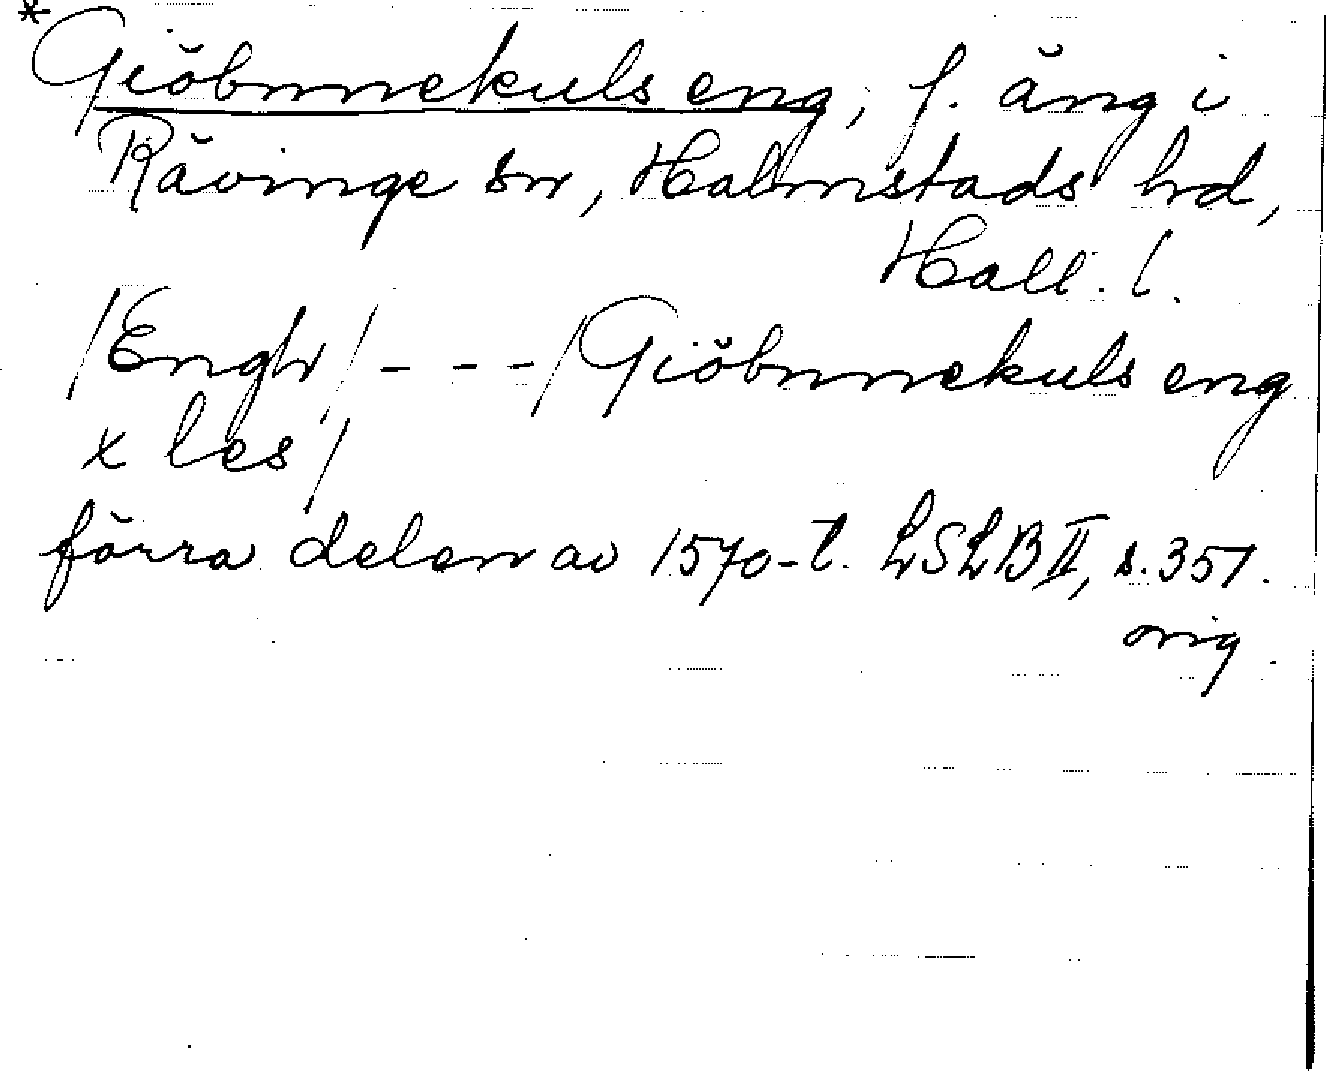 *Giöbnnekuls eng, f. äng i
Rävinge sn, Halmstads hd,
Hall. l.
/Engh/ - - - /Giöbnnekuls eng
x les/
förra delen av 1570-t. LSLB II, s. 351.
orig.